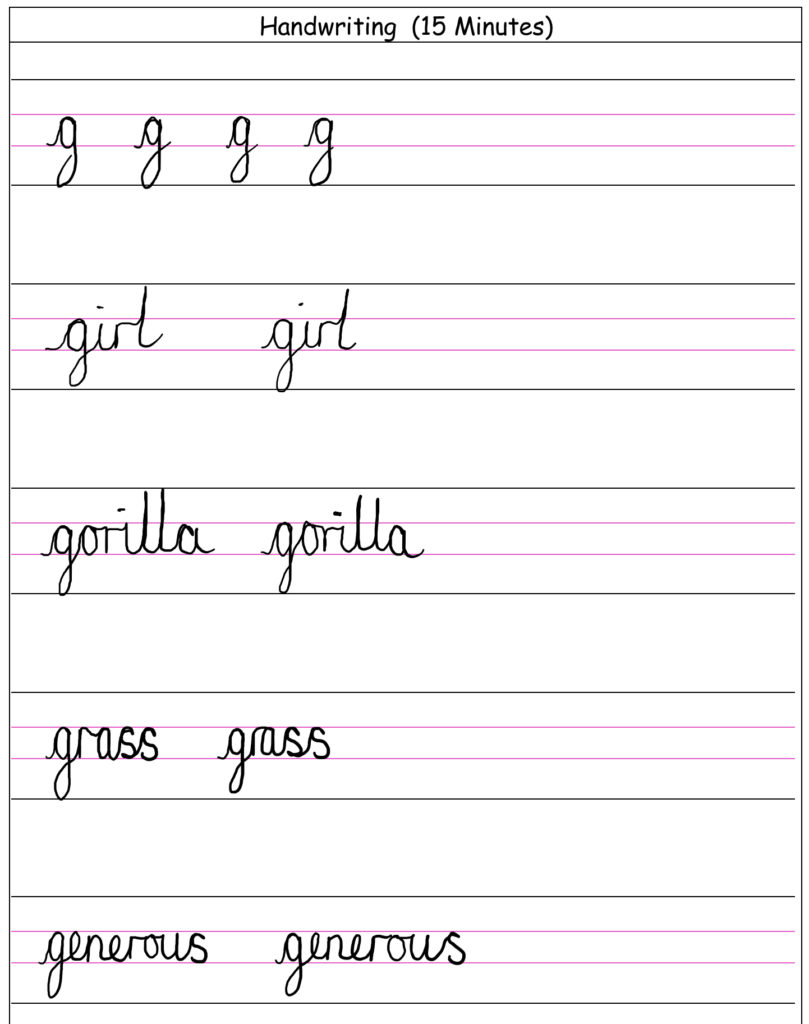 Handwriting (15 Minutes)
g g g g
girl girl
gorilla gorilla
grass grass
generous generous